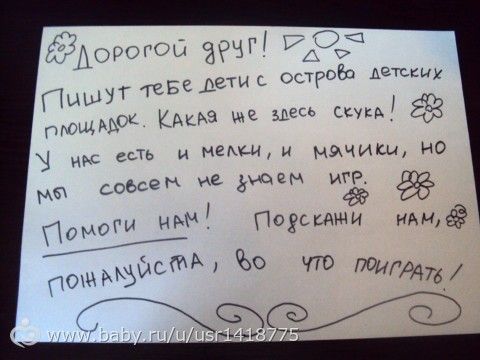 Дорогой друг!
Пишут тебе дети с острова детских
площадок. Какая же здесь скука!
У нас есть и мелки, и мячики, но
мы совсем не знаем игр.
Помоги нам! Подскажи нам,
пожалуйста, во что поиграть!
www.baby.ru/u/usr1418775